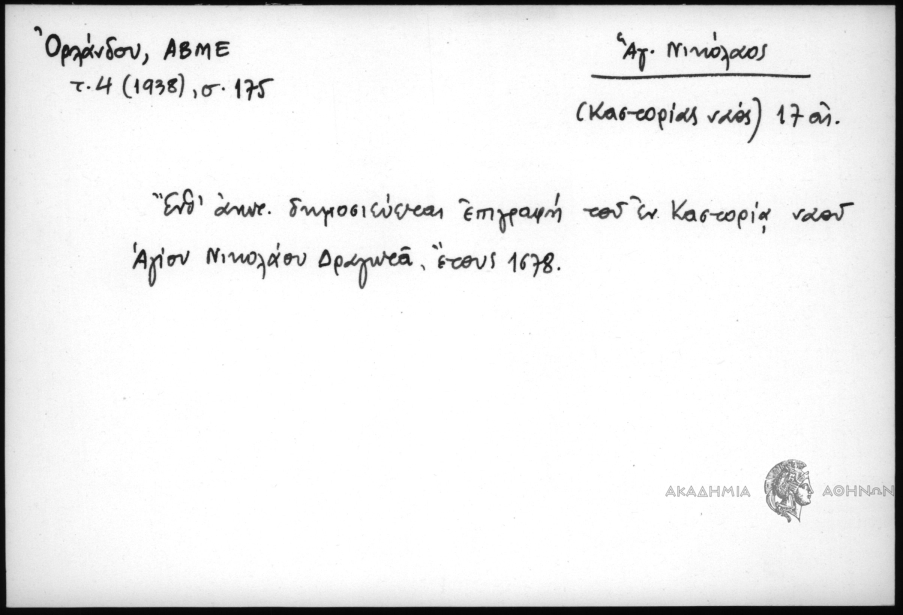 Ὀρλάνδου, ΑΒΜΕ
τ. 4 (1938), σ. 175
Ἅγ. Νικόλαος
(Καστορίας ναός) 17 αἰ.
Ἔνθ' ἀνωτ. δημοσιεύεται ἐπιγραφή τοῦ ἐν Καστορίᾳ ναοῦ
Ἁγίου Νικολάου Δραγωτᾶ, ἔτους 1678.
ΑΚΑΔΗΜΙΑ ΑΘΗΝΩΝ